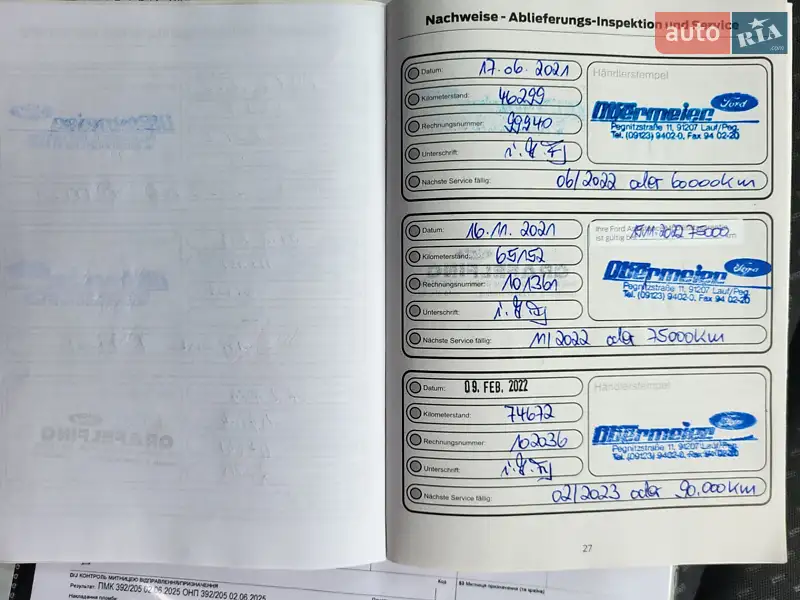 Nachweise - Ablieferungs-Inspektion und Service
auto RIA.com
Datum: 17.06.2021
Händlerstempel
Kilometerstand: 46299
Obermeier Ford
Rechnungsnummer: 99940
Pegnitzstraße 11, 91207 Lauf/Peg.
Tel. (09123) 9402-0, Fax 94 02-20
Unterschrift:
Nächste Service fällig: 06/2022 oder 60000km
Datum: 16.11.2021
Ihre Ford
ist gültig
15.11.2022 75000
Kilometerstand: 65152
Obermeier Ford
Rechnungsnummer: 101361
Pegnitzstraße 11, 91207 Lauf/Peg.
Tel. (09123) 9402-0, Fax 94 02-20
Unterschrift:
Nächste Service fällig: 11/2022 oder 75000km
Datum: 09. FEB. 2022
Händlerstempel
Kilometerstand: 74672
Obermeier Ford
Rechnungsnummer: 102036
Pegnitzstraße 11, 91207 Lauf/Peg.
Tel. (09123) 9402-0, Fax 94 02-20
Unterschrift:
Nächste Service fällig: 02/2023 oder 90.000km
27
GRÄFELFING
D/J КОНТРОЛЬ МИТНИЦЕЮ ВІДПРАВЛЕННЯ/ПРИЗНАЧЕННЯ
Результат: ПМК 392/205 02.06.2025 ОНП 392/205 02.06.2025
Накладено пломби
Код
53 Митниця призначення (та країна)